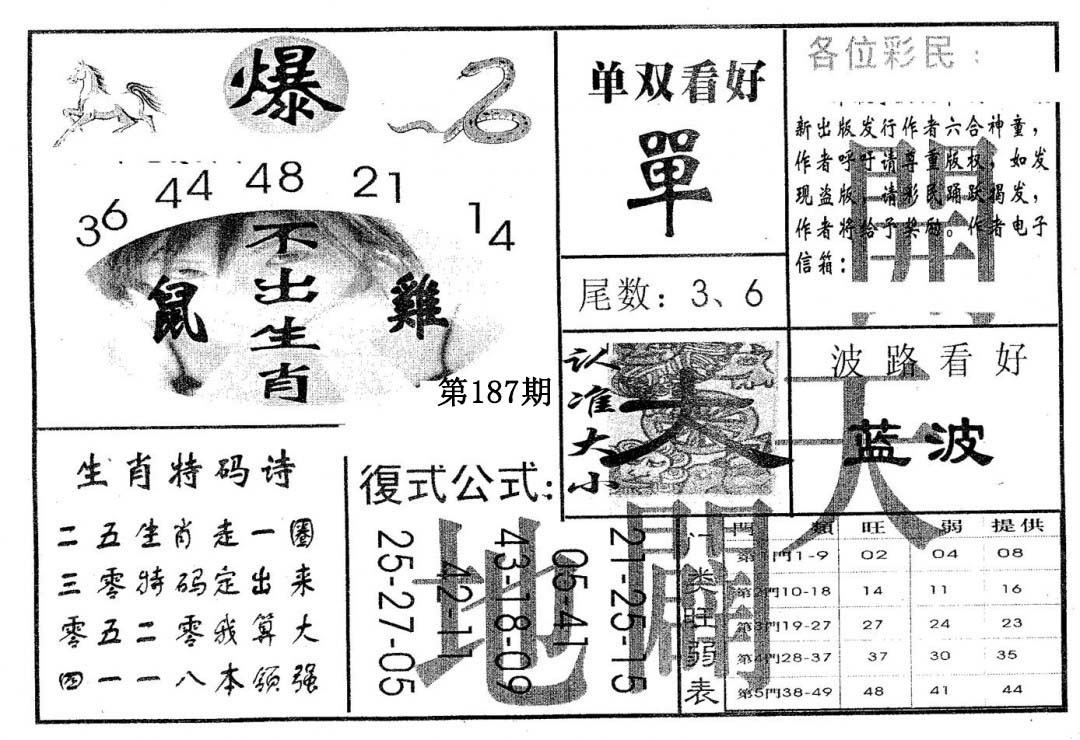 爆
36 44 48 21 14
不出生肖
鼠
雞
第187期
单双看好
單
尾数：3、6
各位彩民：
新出版发行作者六合神童，
作者呼吁请尊重版权，如发
现盗版，请彩民踊跃揭发，
作者将给予奖励。作者电子
信箱：
认准大小
大
波路看好
蓝波
開天
闢地
生肖特码诗
二五生肖走一圈
三零特码定出来
零五二零我算大
四一一八本领强
復式公式：
25-27-05
42-11
43-18-09
05-41
21-25-15
门类旺弱表
門類 旺 弱 提供
第1門1-9 02 04 08
第2門10-18 14 11 16
第3門19-27 27 24 23
第4門28-37 37 30 35
第5門38-49 48 41 44